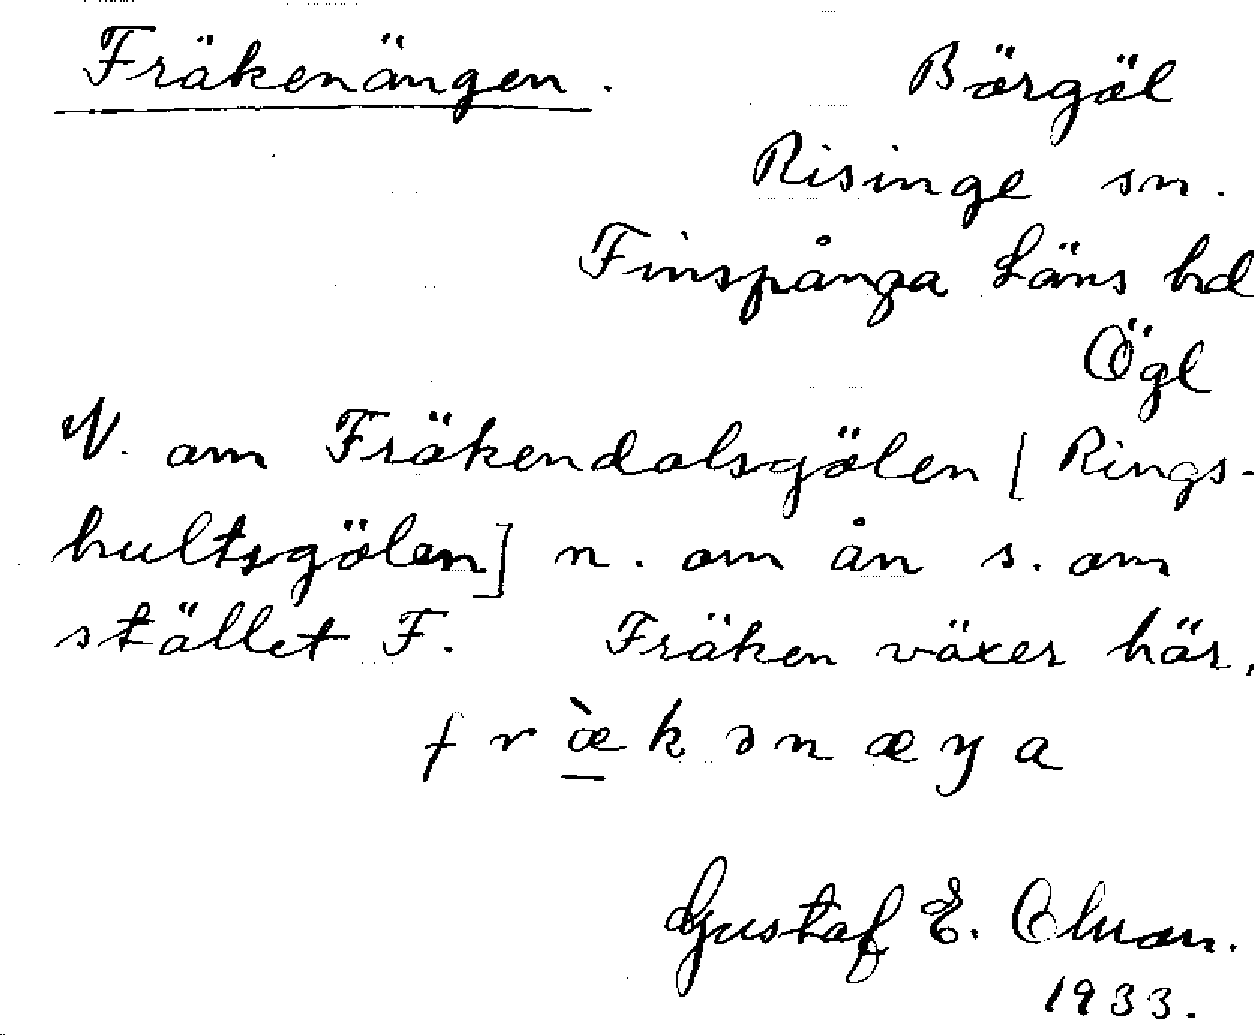 Fräkenängen. Börgöl
Risinge sn.
Finspånga Läns hd
Ögl
V. om Fräkendalsgölen [Rings-
hultsgölen] n. om ån s. om
stället F. Fräken växer här.
fr æ̀ k ə n æ ŋ a
Gustaf E.
1933.